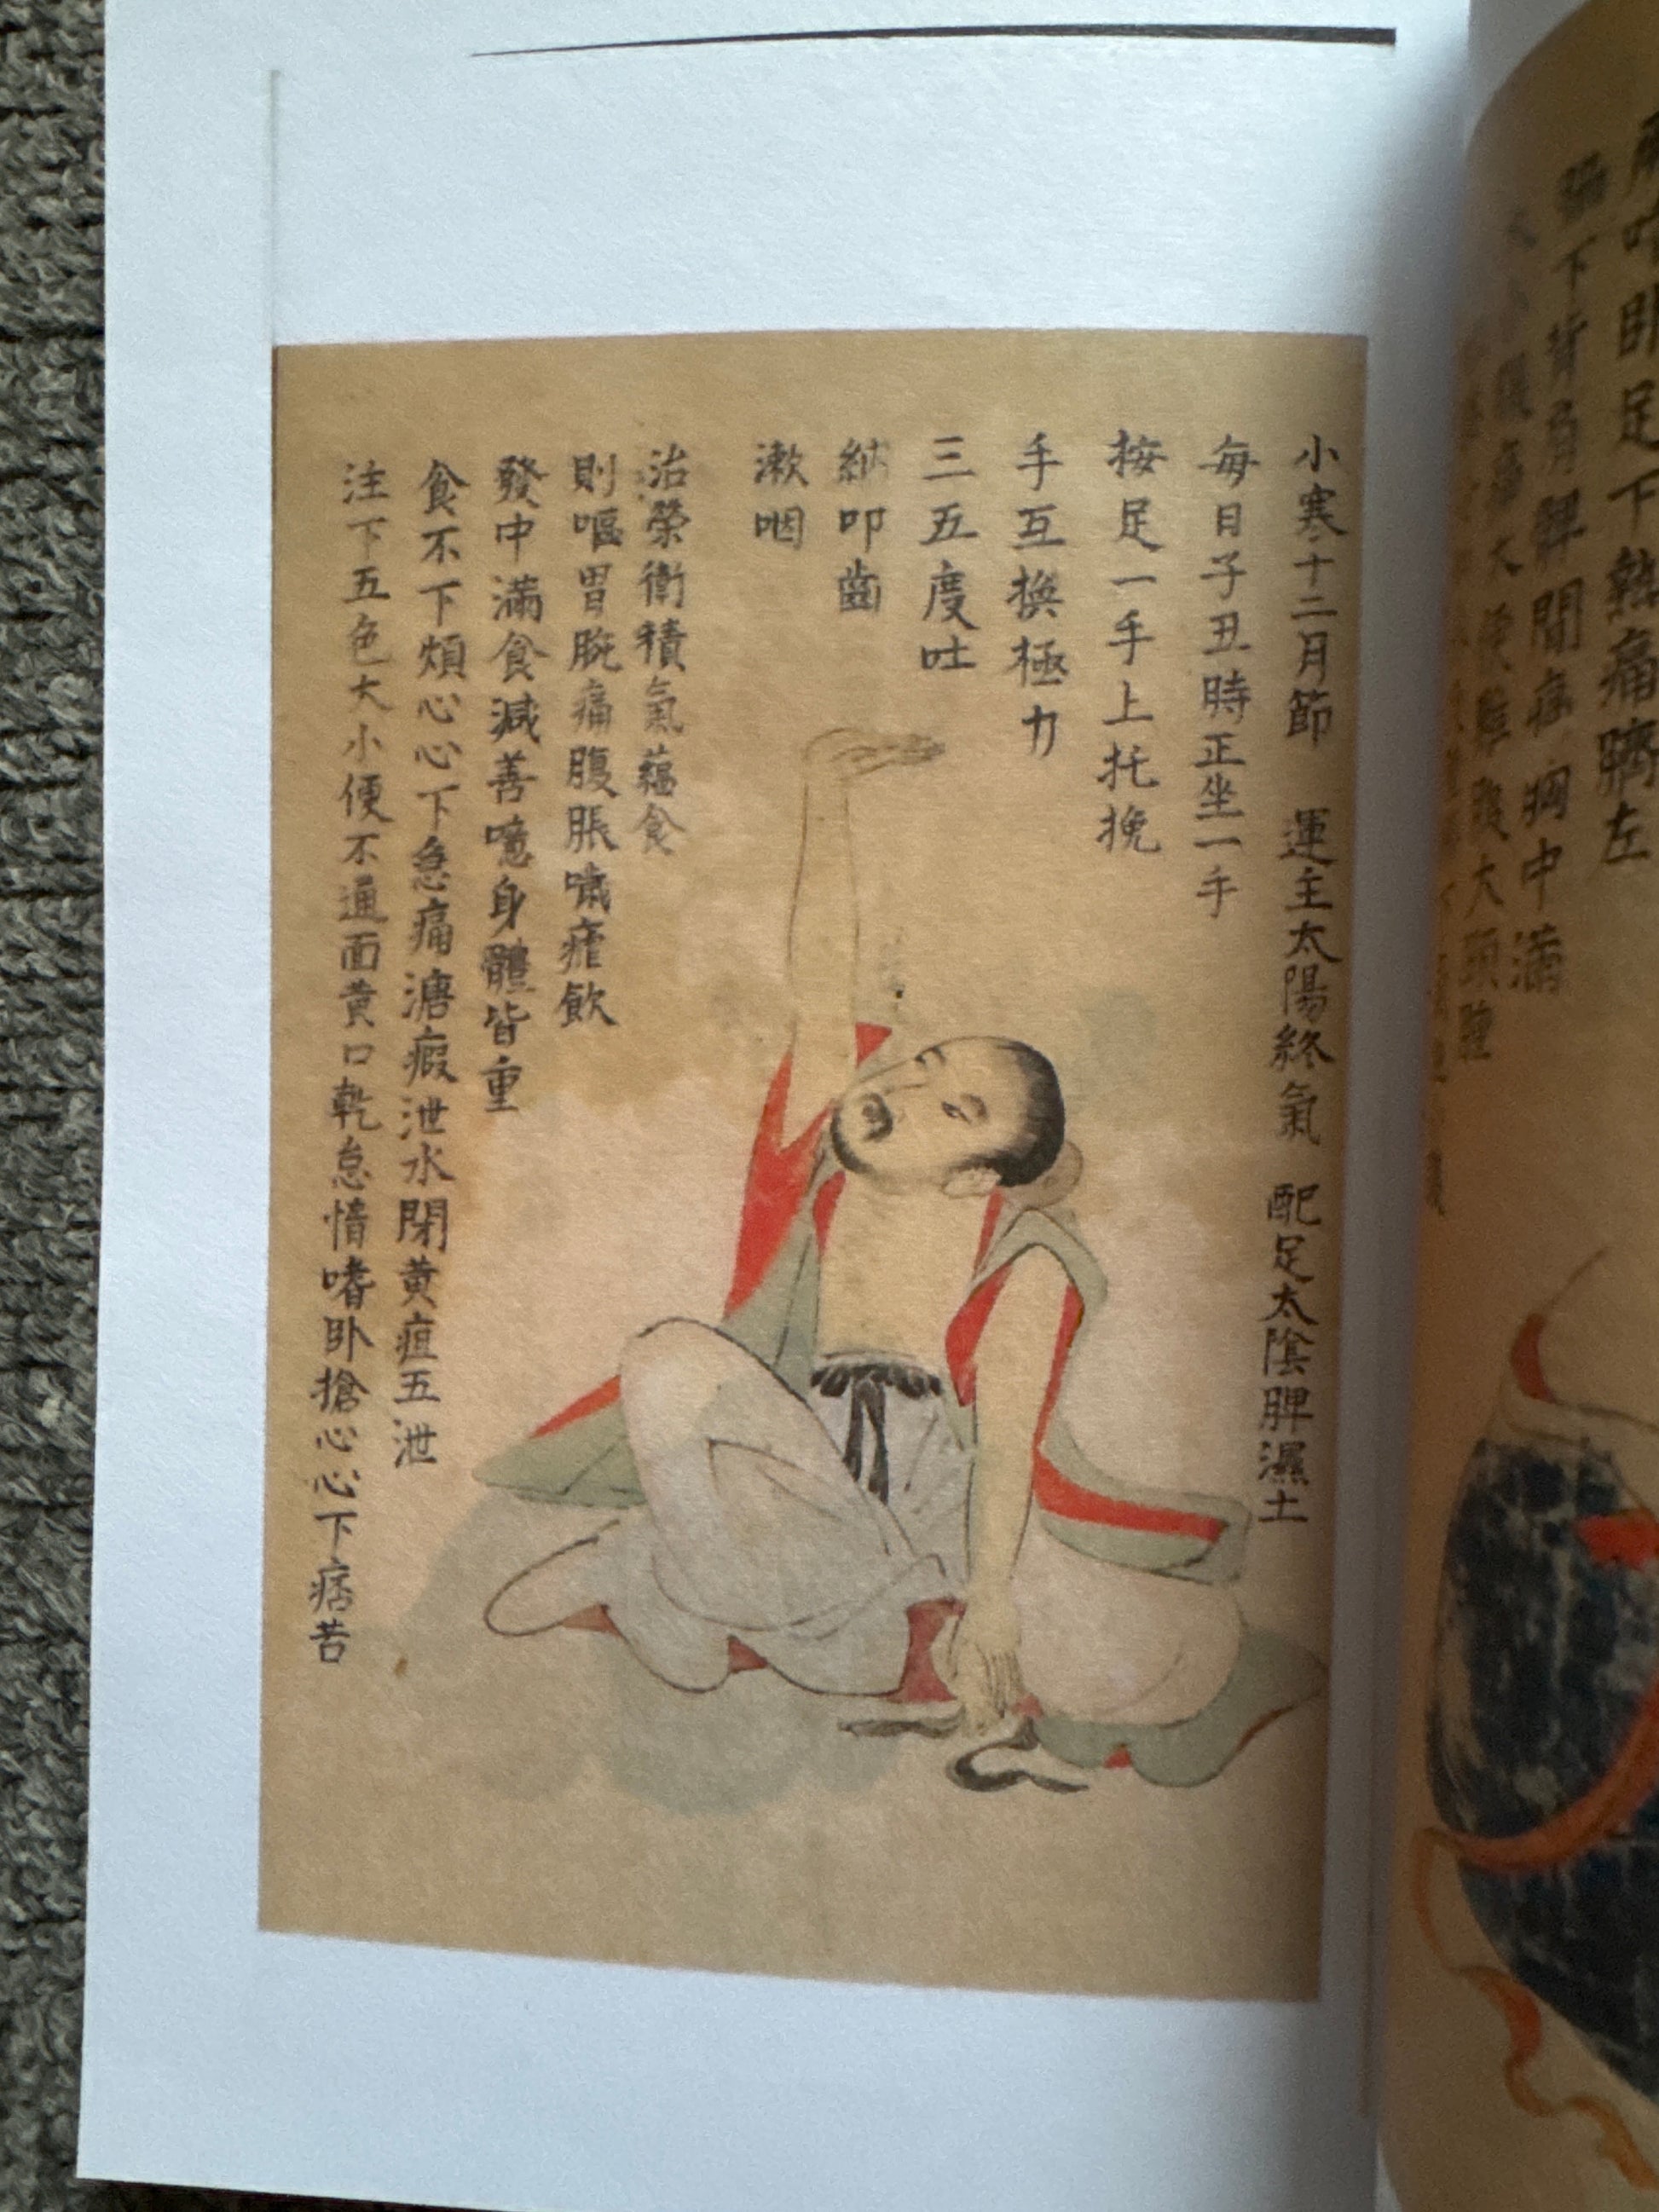 小寒十二月節　運主太陽終氣　配足太陰脾濕土
每日子丑時正坐一手
按足一手上托挽
手互換極力
三五度吐
納叩齒
漱咽
治榮衛積氣蘊食
則嘔胃腕痛腹脹噦瘧飲
發中滿食減善噫身體皆重
食不下煩心心下急痛溏瘕泄水閉黃疸五泄
注下五色大小便不通面黃口乾怠惰嗜卧搶心心下痞苦
足下熱痛臍左
下背肩髀間痛胸中滿